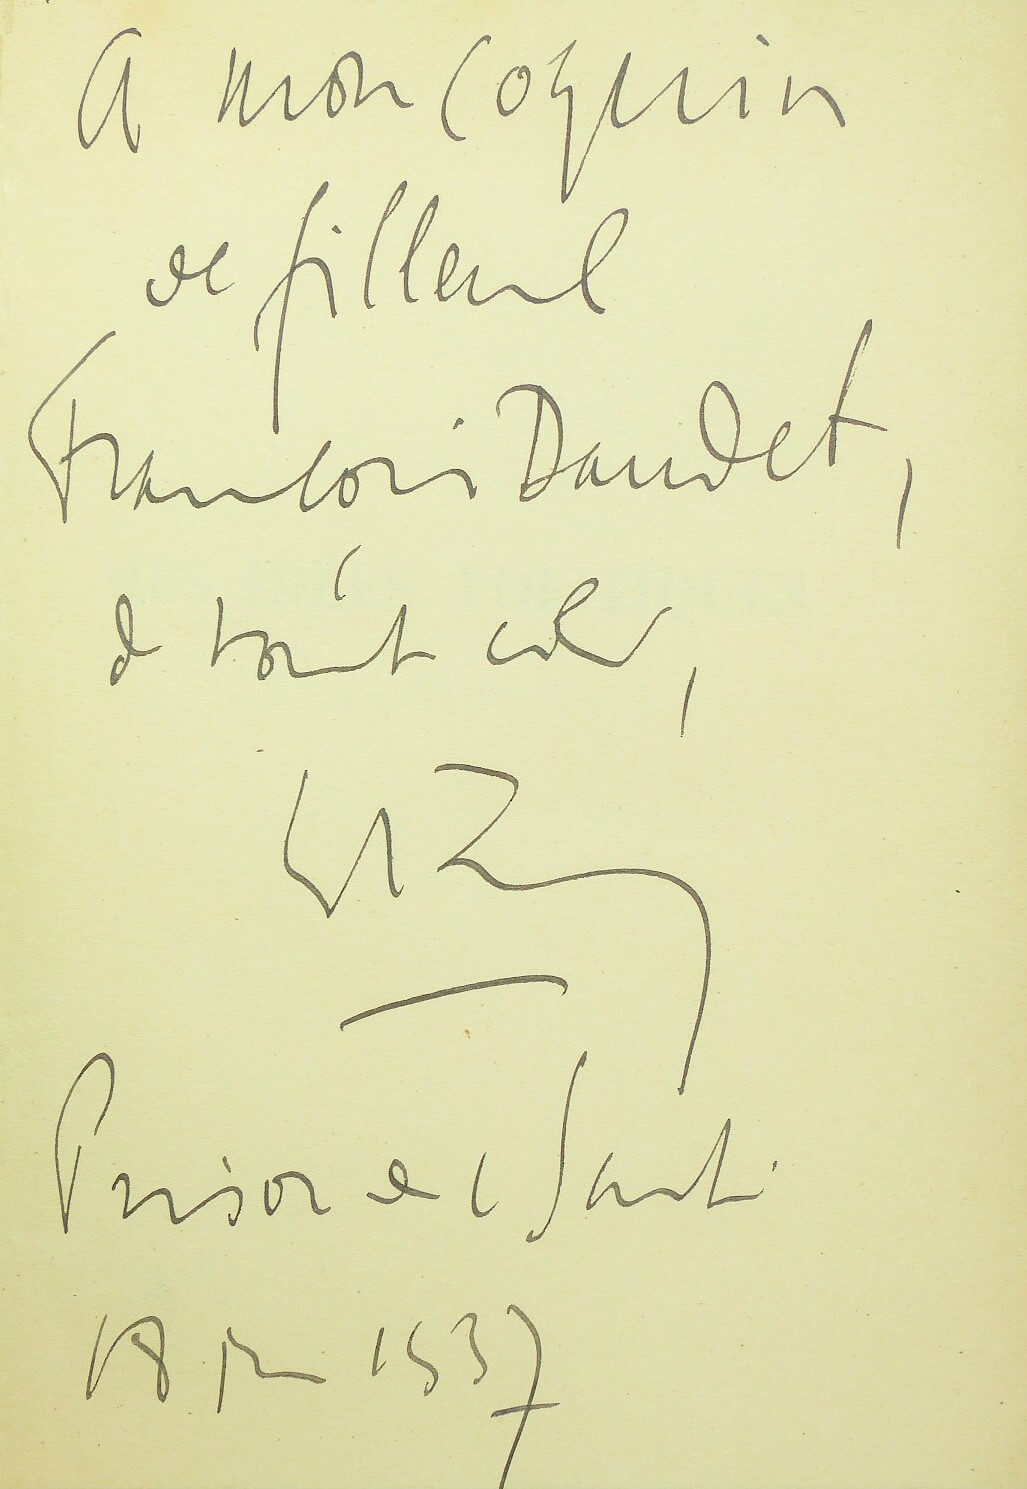 A mon coquin
de filleul
François Daudet,
de tout cœur,
Prison de la Santé
18 1937